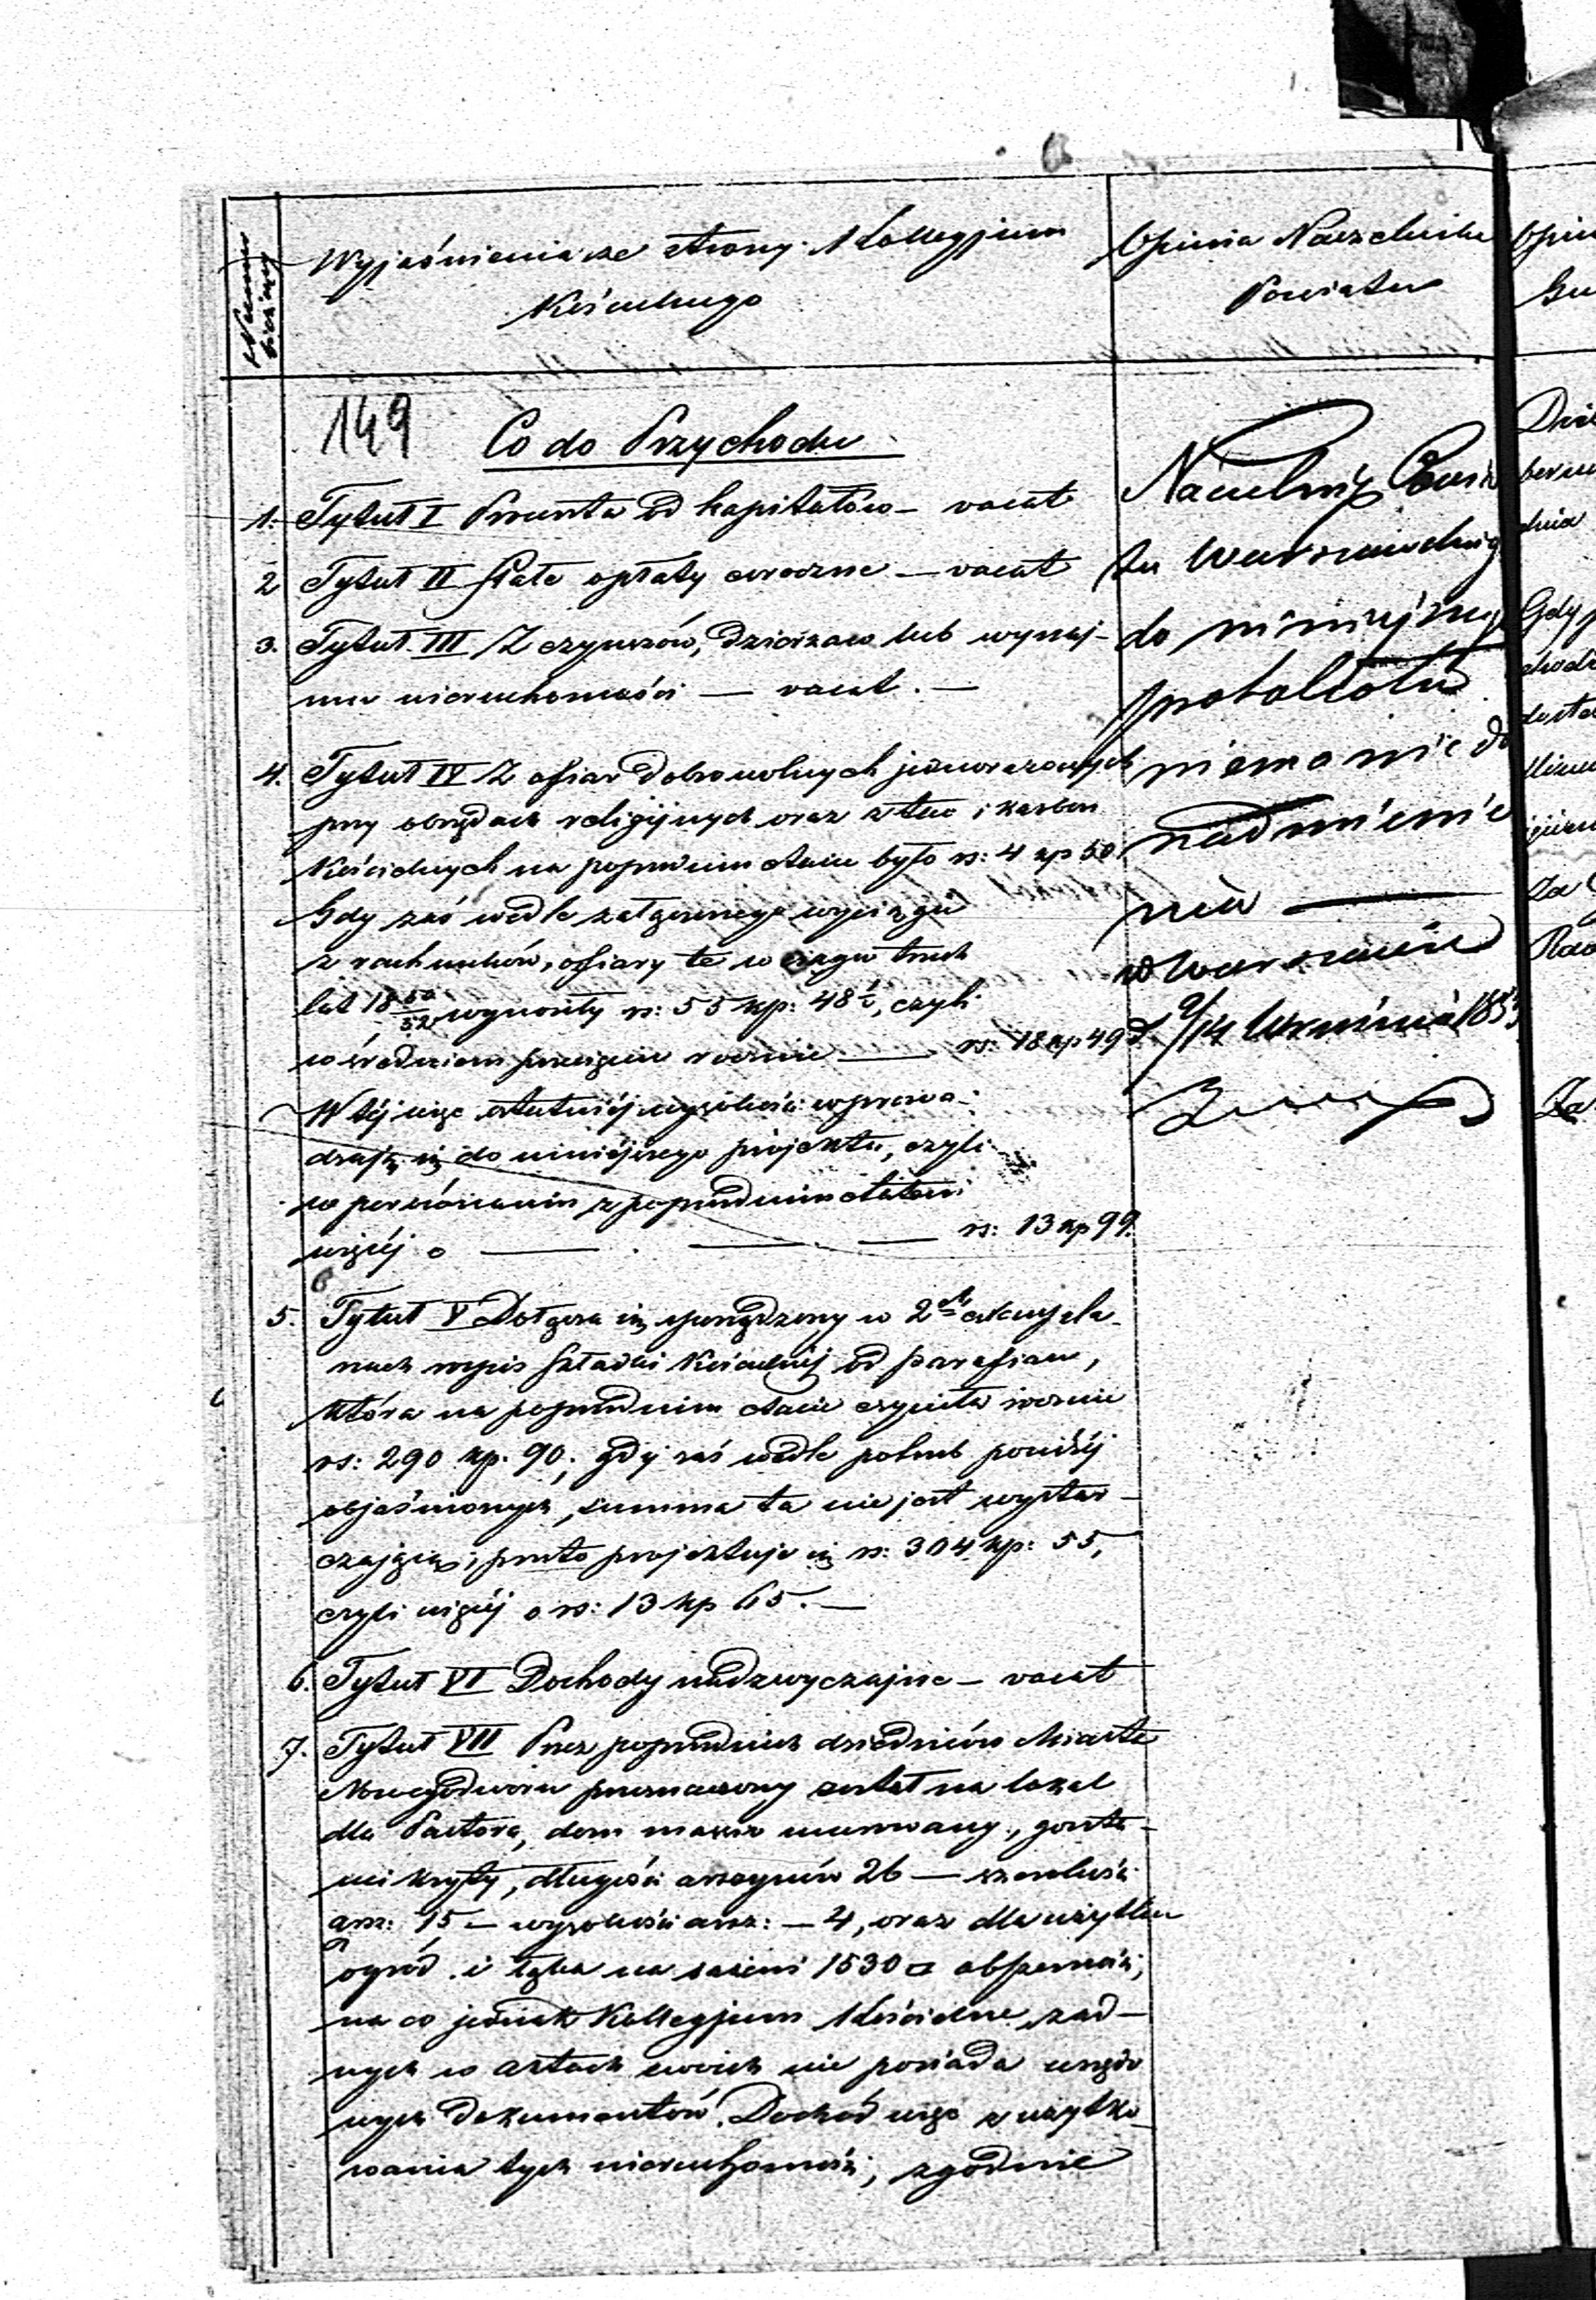 Numer bieżący
Wyjaśnienia ze strony Kollegjum
Kościelnego
Opinia Naczelnika
Powiatu
149
Co do Przychodu
1. Tytuł I Procenta od kapitałów – vacat
2 Tytuł II Stałe opłaty coroczne – vacat
3. Tytuł III Z czynszów, dzierżaw lub wynaj-
mu nieruchomości — vacat. —
4. Tytuł IV Z ofiar dobrowolnych jednorazowych
przy obrzędach religijnych oraz z tac i karbon
Kościelnych na poprzednim etacie było rs: 4 kp 50
Gdy zaś wedle załączonego wyciągu
z rachunków, ofiary te w ciągu trzech
lat 18 50/52 wynosiły rs: 55 kp: 48½, czyli
w średniem przecięciu rocznie — rs: 18 kp 49
W tej więc ostatniej wysokości wprowa-
dzają się do niniejszego projektu, czyli
w porównaniu z poprzednim etatem
więcej o — . — — rs: 13 kp 99.
5. Tytuł V Dołącza się sporządzony w 2ch exempla-
rzach rozpis składki Kościelnej od parafian,
która na poprzednim etacie czyniła rocznie
rs: 290 kp. 90; gdy zaś wedle potrzeb poniżej
objaśnionych, summa ta nie jest wystar-
czająca, przeto projektuje się rs: 304 kp: 55,
czyli więcej o rs: 13 kp 65. —
6. Tytuł VI Dochody nadzwyczajne – vacat
7. Tytuł VII Przez poprzednich dziedziców Miasta
Nowegodworu przeznaczony został na lokal
dla Pastora, dom massiw murowany, gonta-
mi kryty, długości arszynów 26 — szerokości
arsz: 15 – wysokości arsz: – 4, oraz dla użytku
ogród i łąka na sążeni 1530 □ obszerności;
na co jednak Kollegjum Kościelne żad-
nych w aktach swoich nie posiada urzędo
wych dokumentów. Dochód więc z użytko-
wania tych nieruchomości, zgodnie
Naczelnik Powia
tu Warszawskiego
do niniejszego
protokółu
niema nic do
nadmienie
nia —
w Warszawie
d 2/14 Września 185